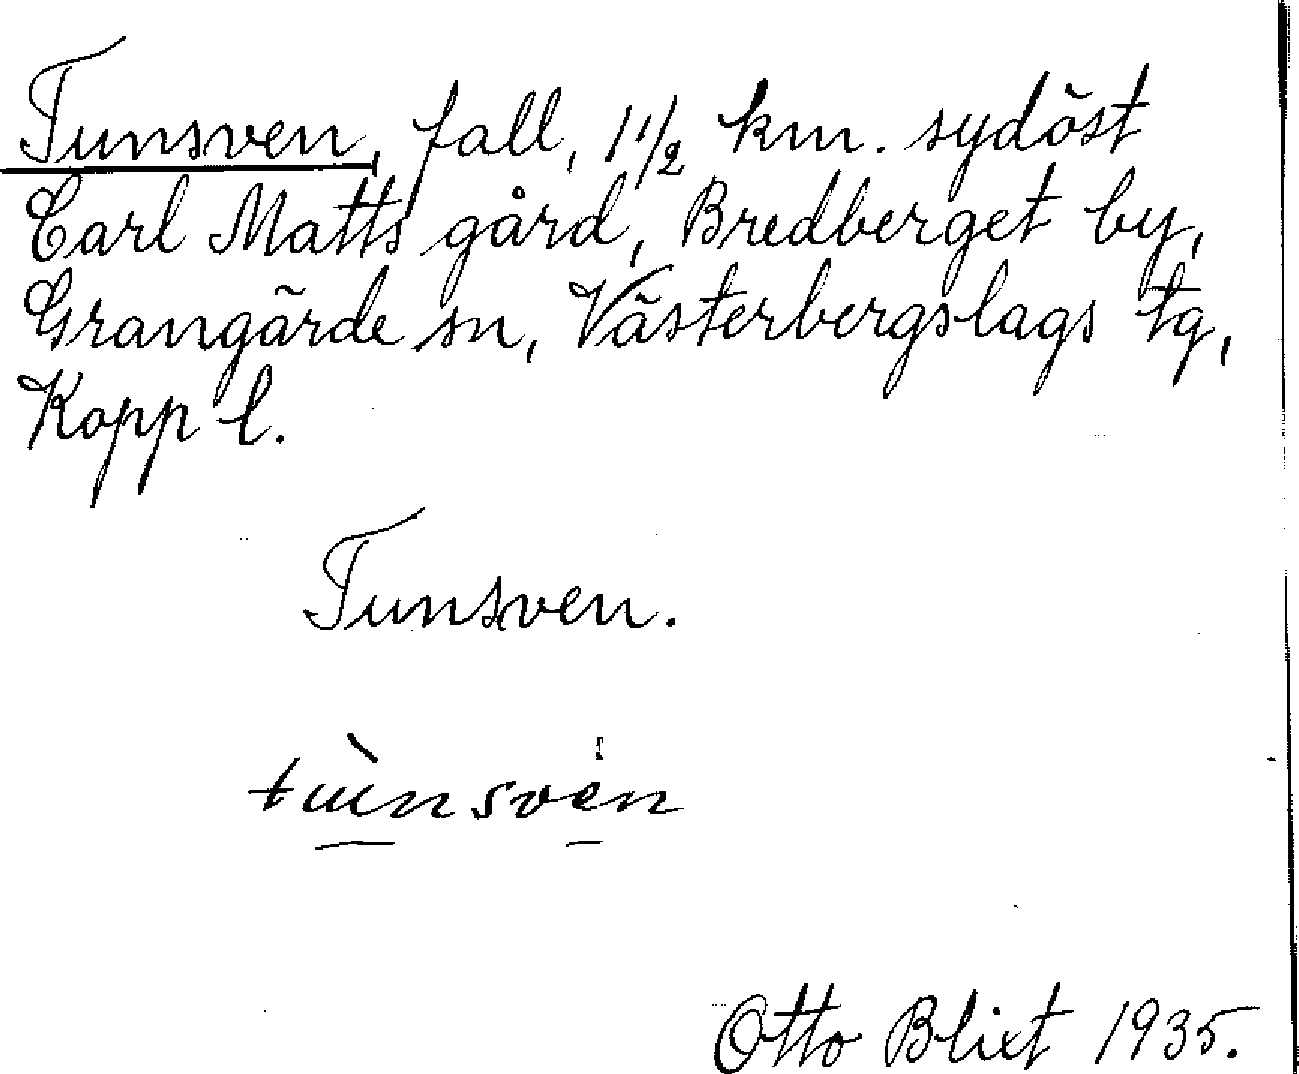 Tunsven, fall, 1 1/2 km. sydöst
Carl Matts gård, Bredberget by,
Grangärde sn, Västerbergslags tg,
Kopp l.
Tunsven.
Otto Blixt 1935.